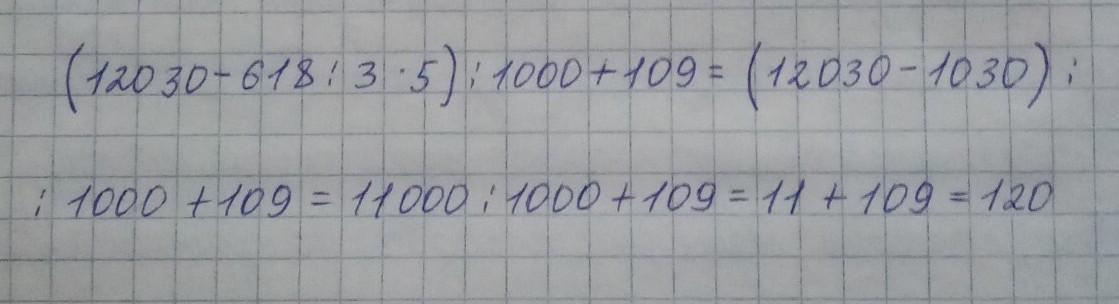 (12030-618:3·5):1000+109=(12030-1030):
:1000+109=11000:1000+109=11+109=120